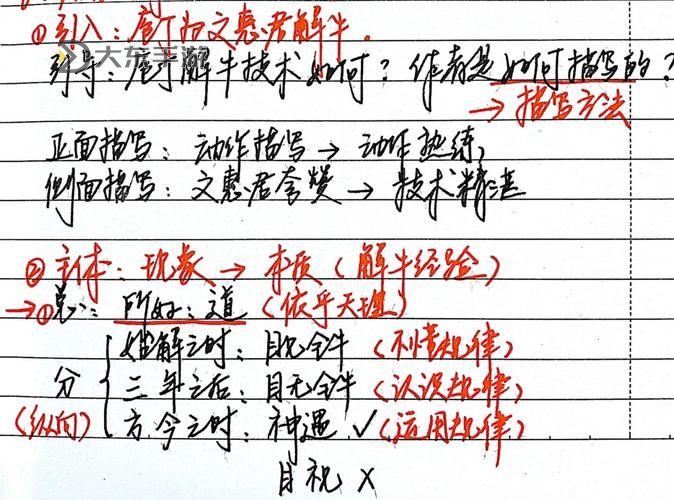 ①引入:庖丁为文惠君解牛。
引导:庖丁解牛技术如何?作者是如何描写的?
→描写方法
正面描写:动作描写→动作熟练,
侧面描写:文惠君夸赞→技术精湛
②主体:现象→本质(解牛经验)
→①总:所好:道(依乎天理)
始解之时:目见全牛(不懂规律)
分 三年之后:目无全牛(认识规律)
(纵向) 方今之时:神遇✓(运用规律)
目视×
大东手游